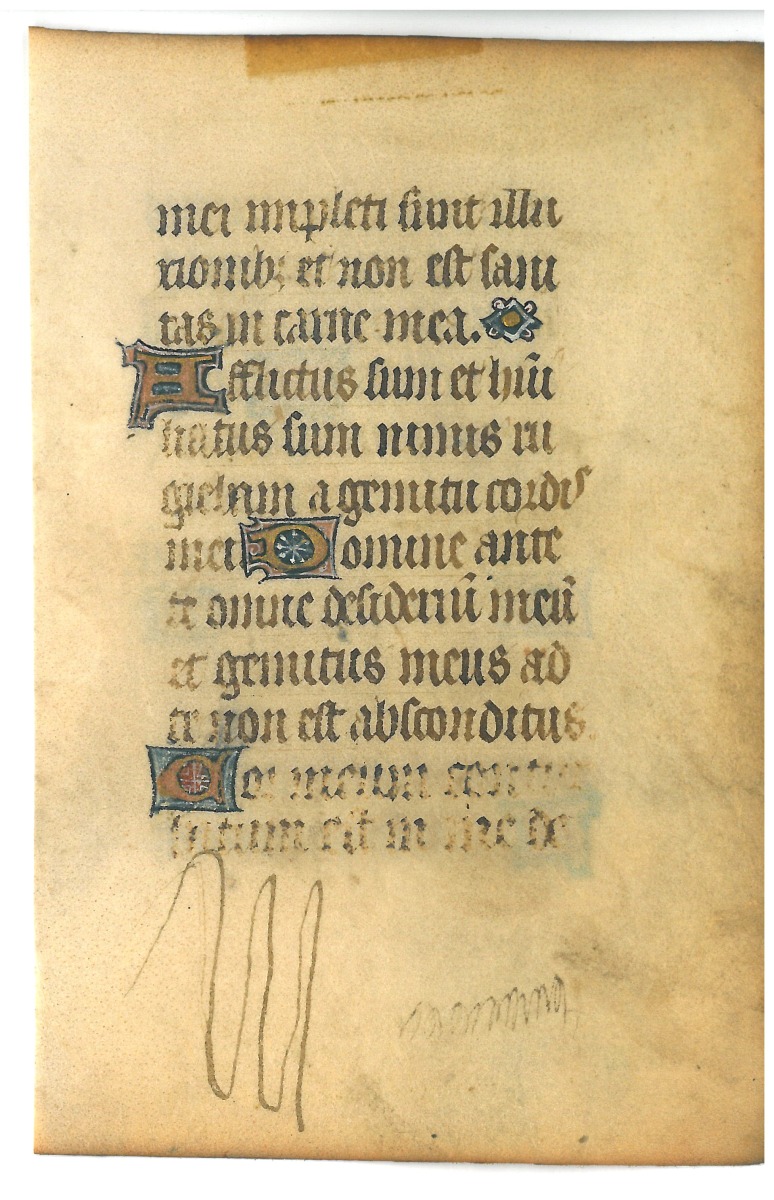 mei impleti sunt illu
sionib; et non est sani
tas in carne mea.
Afflictus sum et hūi
liatus sum nimis ru
giebam a gemitu cordis
mei Domine ante
te omne desideriū meū
et gemitus meus ad
te non est absconditus
Cor meum contur
batum est in me de